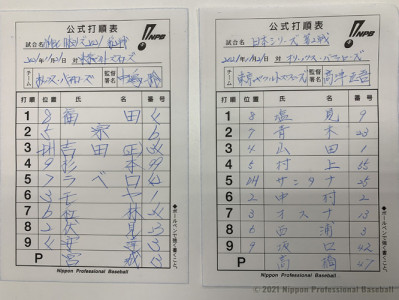 公式打順表
NPB
試合名 日本シリーズ2021 第2戦
2021年11月21日 対
チーム 監督署名
打順 位置 氏名 番号
1 8 福田
2 5 宗 6
3 DH 吉田正
4 9 杉本 99
5 7 ラベロ
6 3 モヤ 1
7 6 紅林 24
8 2 伏見 23
9 4 安達 3
P 宮城 13
●ボールペンで強く書くこと。
Nippon Professional Baseball
公式打順表
NPB
試合名 日本シリーズ 第2戦
2021年11月21日 対 オリックス・バファローズ
チーム 東京ヤクルトスワローズ 監督署名 高津臣吾
打順 位置 氏名 番号
1 8 塩見 9
2 7 青木 23
3 4 山田 1
4 5 村上 55
5 DH サンタナ 25
6 2 中村 2
7 3 オスナ 13
8 6 西浦 3
9 9 坂口 42
P 高橋 47
●ボールペンで強く書くこと。
Nippon Professional Baseball
© 2021 Nippon Professional Baseball